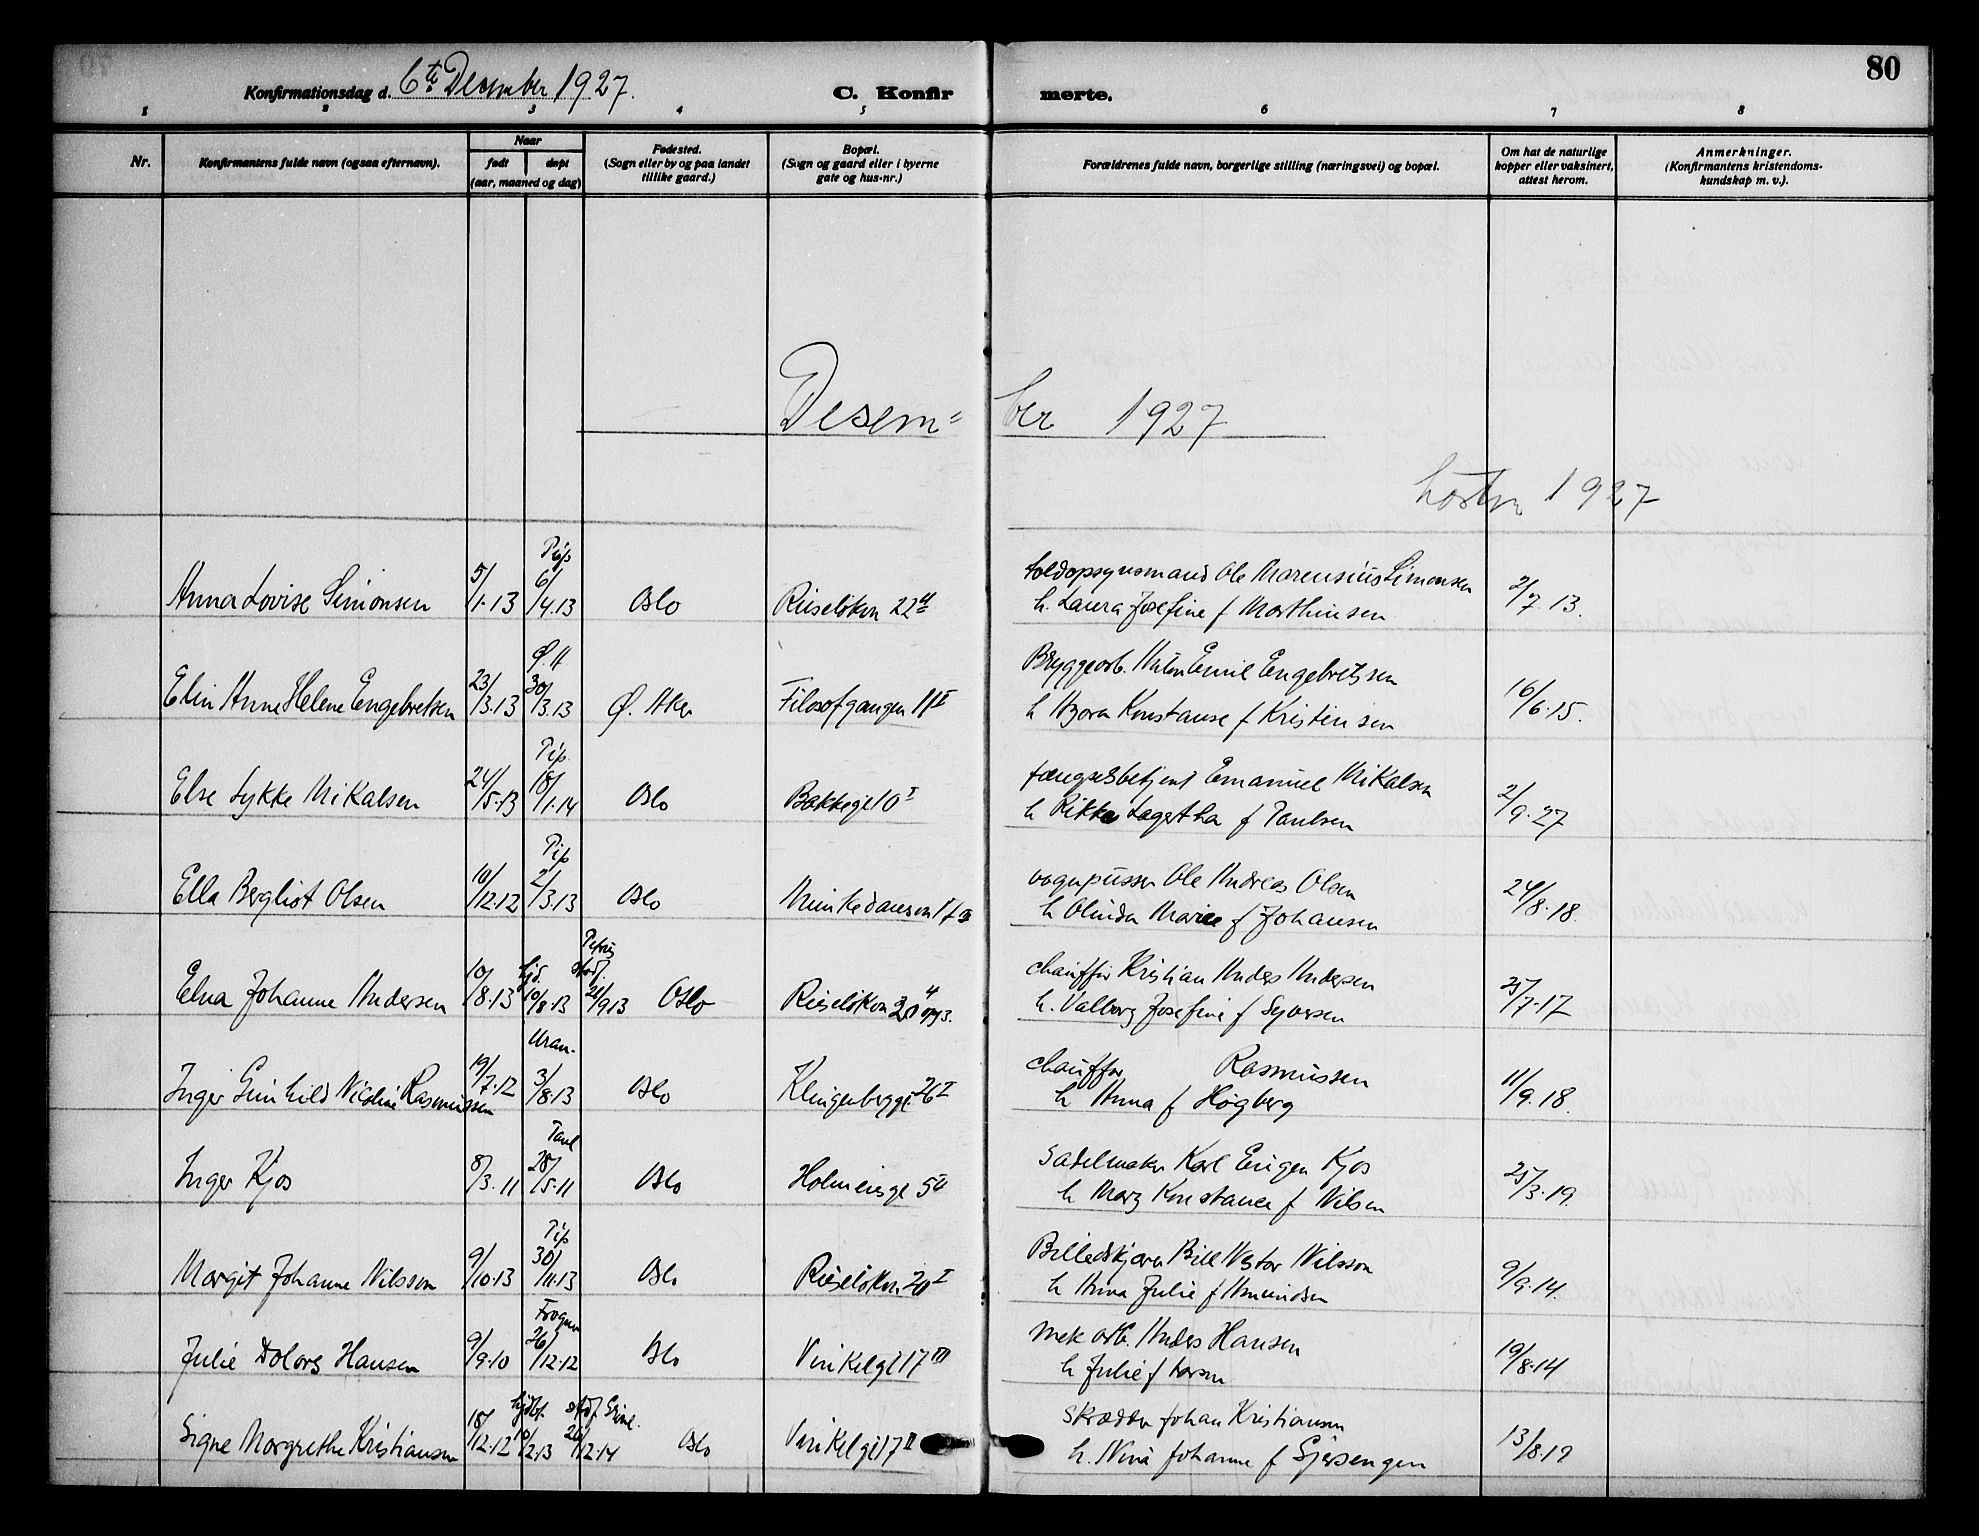 80
Konfirmationsdag d. 6te Desember 1927.
C. Konfir merte.
1 2 3 4 5 6 7 8
Nr.
Konfirmantens fulde navn (ogsaa efternavn).
Naar
født døpt
(aar, maaned og dag)
Fødested.
(Sogn eller by og paa landet
tillike gaard.)
Bopæl.
(Sogn og gaard eller i byerne
gate og hus-nr.)
Forældrenes fulde navn, borgerlige stilling (næringsvei) og bopæl.
Om hat de naturlige
kopper eller vaksinert,
attest herom.
Anmerkninger.
(Konfirmantens kristendoms-
kundskap m. v.).
Desem= ber 1927
høsten 1927
Pip
toldopsynsmand Ole Marensius Simonsen
Anna Lovise Simonsen 5/1.13 6/4.13 Oslo Ruseløkvn 22
h. Laura Josefine f Marthinsen 2/7 13.
Ø. A
Bryggearb. Anton Emil Engebretsen
Elin Anne Helene Engebretsen 23/3.13 30/3.13 Ø. Aker Filosofgangen 11 I
h Konstanse f Kristensen 16/6.15.
Pip.
fængselsbetjent Emanuel Mikalsen
Else Lykke Mikalsen 24/5.13 18/1.14 Oslo Bakkegt 10 I
h Rikka Lagertha f Paulsen 2/9.27
Pip
vognpusser Ole Andreas Olsen
Ella Bergliot Olsen 10/12.12 2/3.13 Oslo Munkedamsvn
h Olinda Marie f Johansen 24/8.18.
Petrus
hjd. stad.
chauffør Kristian Anders Andersen
Elna Johanne Andersen 10/8.13 10/8.13 21/9 13 Oslo Ruseløkvn 20
h. Valborg Josefine f Syversen 25/7.17
Uran.
chauffør Rasmussen
Inger Gunhild Nicoline Rasmussen 19/7.12 3/8.13 Oslo Klingenberggt 26 I
h Anna f Høgberg 11/9.18.
Paul
Sadelmaker Karl Eugen Kjos
Inger Kjos 8/3.11 28/5.11 Oslo Holmensgt 5 II
h Mary Konstance f Nilsen 25/3.19.
Pip
Billedskjærer Bill Victor Nilsson
Margit Johanne Nilsson 9/10.13 30/11.13 Oslo Ruseløkvn 20 I
h Anna Julie f Amundsen 9/9.14.
Frogner
Mek arb. Anders Hansen
Julie Dolores Hansen 9/9.10 26/12.12 Oslo Vinkelgt 17 III
h Julie f Larsen 19/8.14
hjdbt. stadf.
Skrædder Johan Kristiansen
Signe Margrethe Kristiansen 18/12.12 10/2.13 26/12.14 Oslo Vinkelgt 17 II
h. Nina Johanne f Gjersengen 13/8.19